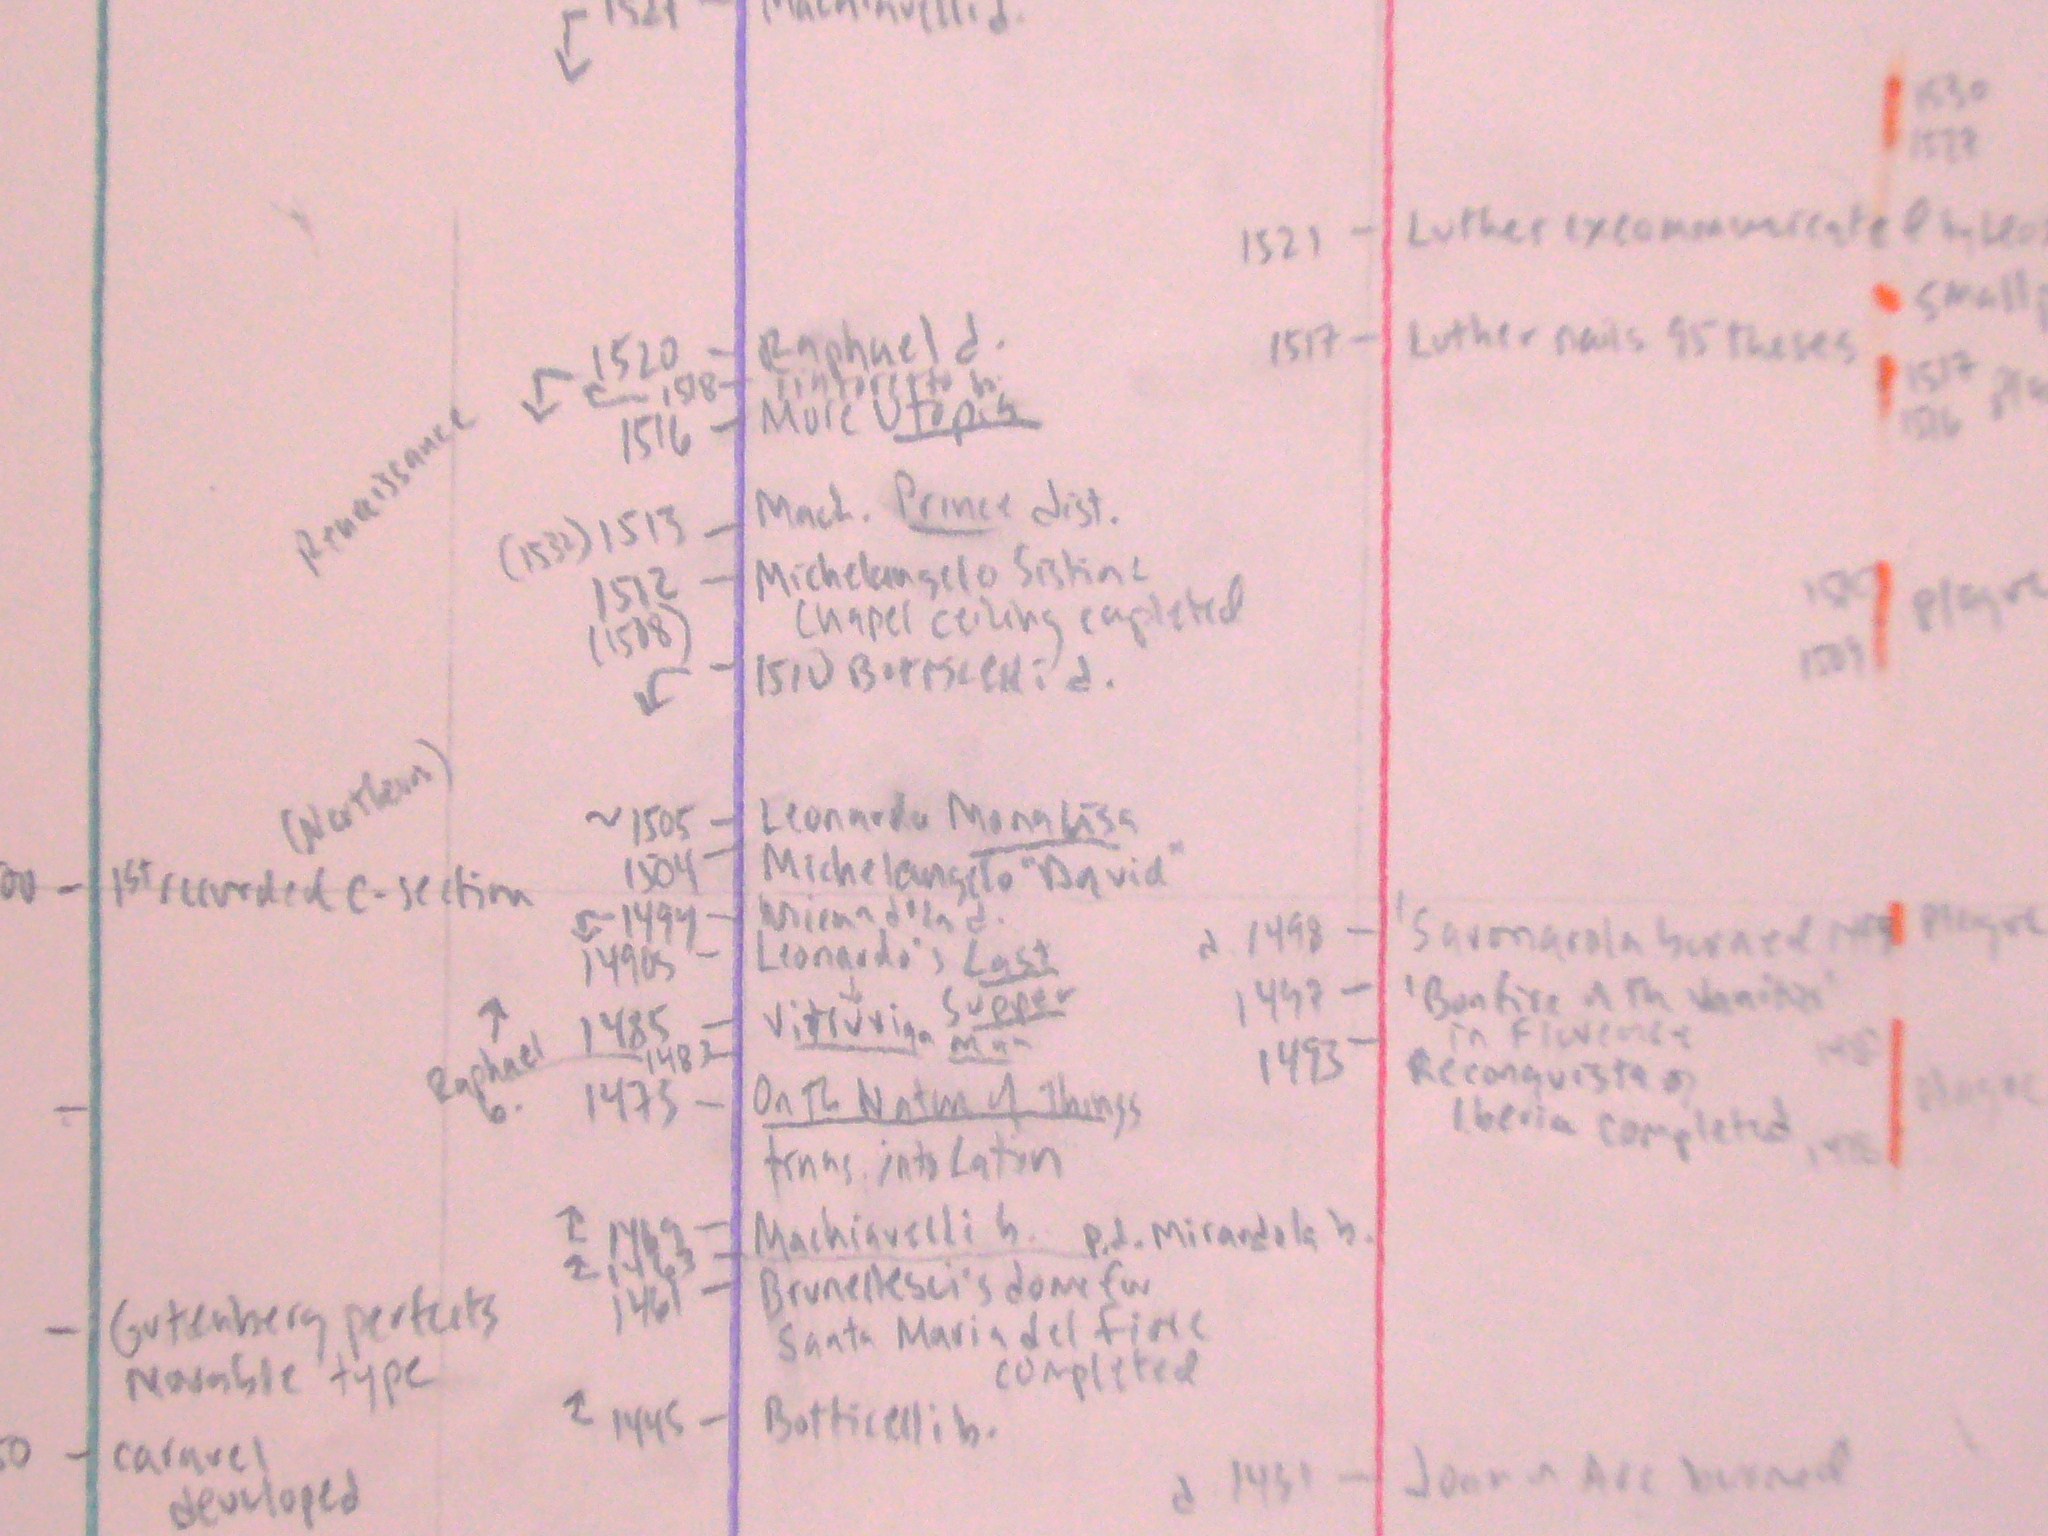 Machiavelli d.
1530
1521 – Luther excommunicated by Leo
1520 – Raphael d.
1518 – Tintoretto b.
1516 – More Utopia
1517 – Luther nails 95 theses
1517
1516
Renaissance
(1532) 1513 – Mach. Prince dist.
1512 – Michelangelo Sistine
(1508) Chapel ceiling
plague
1509
1510 Botticelli d.
(Northern)
~1505 – Leonardo Mona Lisa
1504 – Michelangelo "David"
00 – 1st recorded C-section
Mirandola d.
1490s – Leonardo's Last
Supper
d. 1498 – 'Savonarola burned
plague
1497 – 'Bonfire of Th Vanities'
in Florence
1485 – Vitruvian Man
1483
Raphael
b.
1493 – Reconquista of
Iberia completed
plague
1475 – On Th Nature of Things
trans. into Latin
1469 – Machiavelli b. p.d. Mirandola b.
1463
1461 – Brunellesci's dome for
Santa Maria del Fiore
completed
– Gutenberg perfects
movable type
1445 – Botticelli b.
50 – caravel
developed
d 1431 – Joan of Arc burned